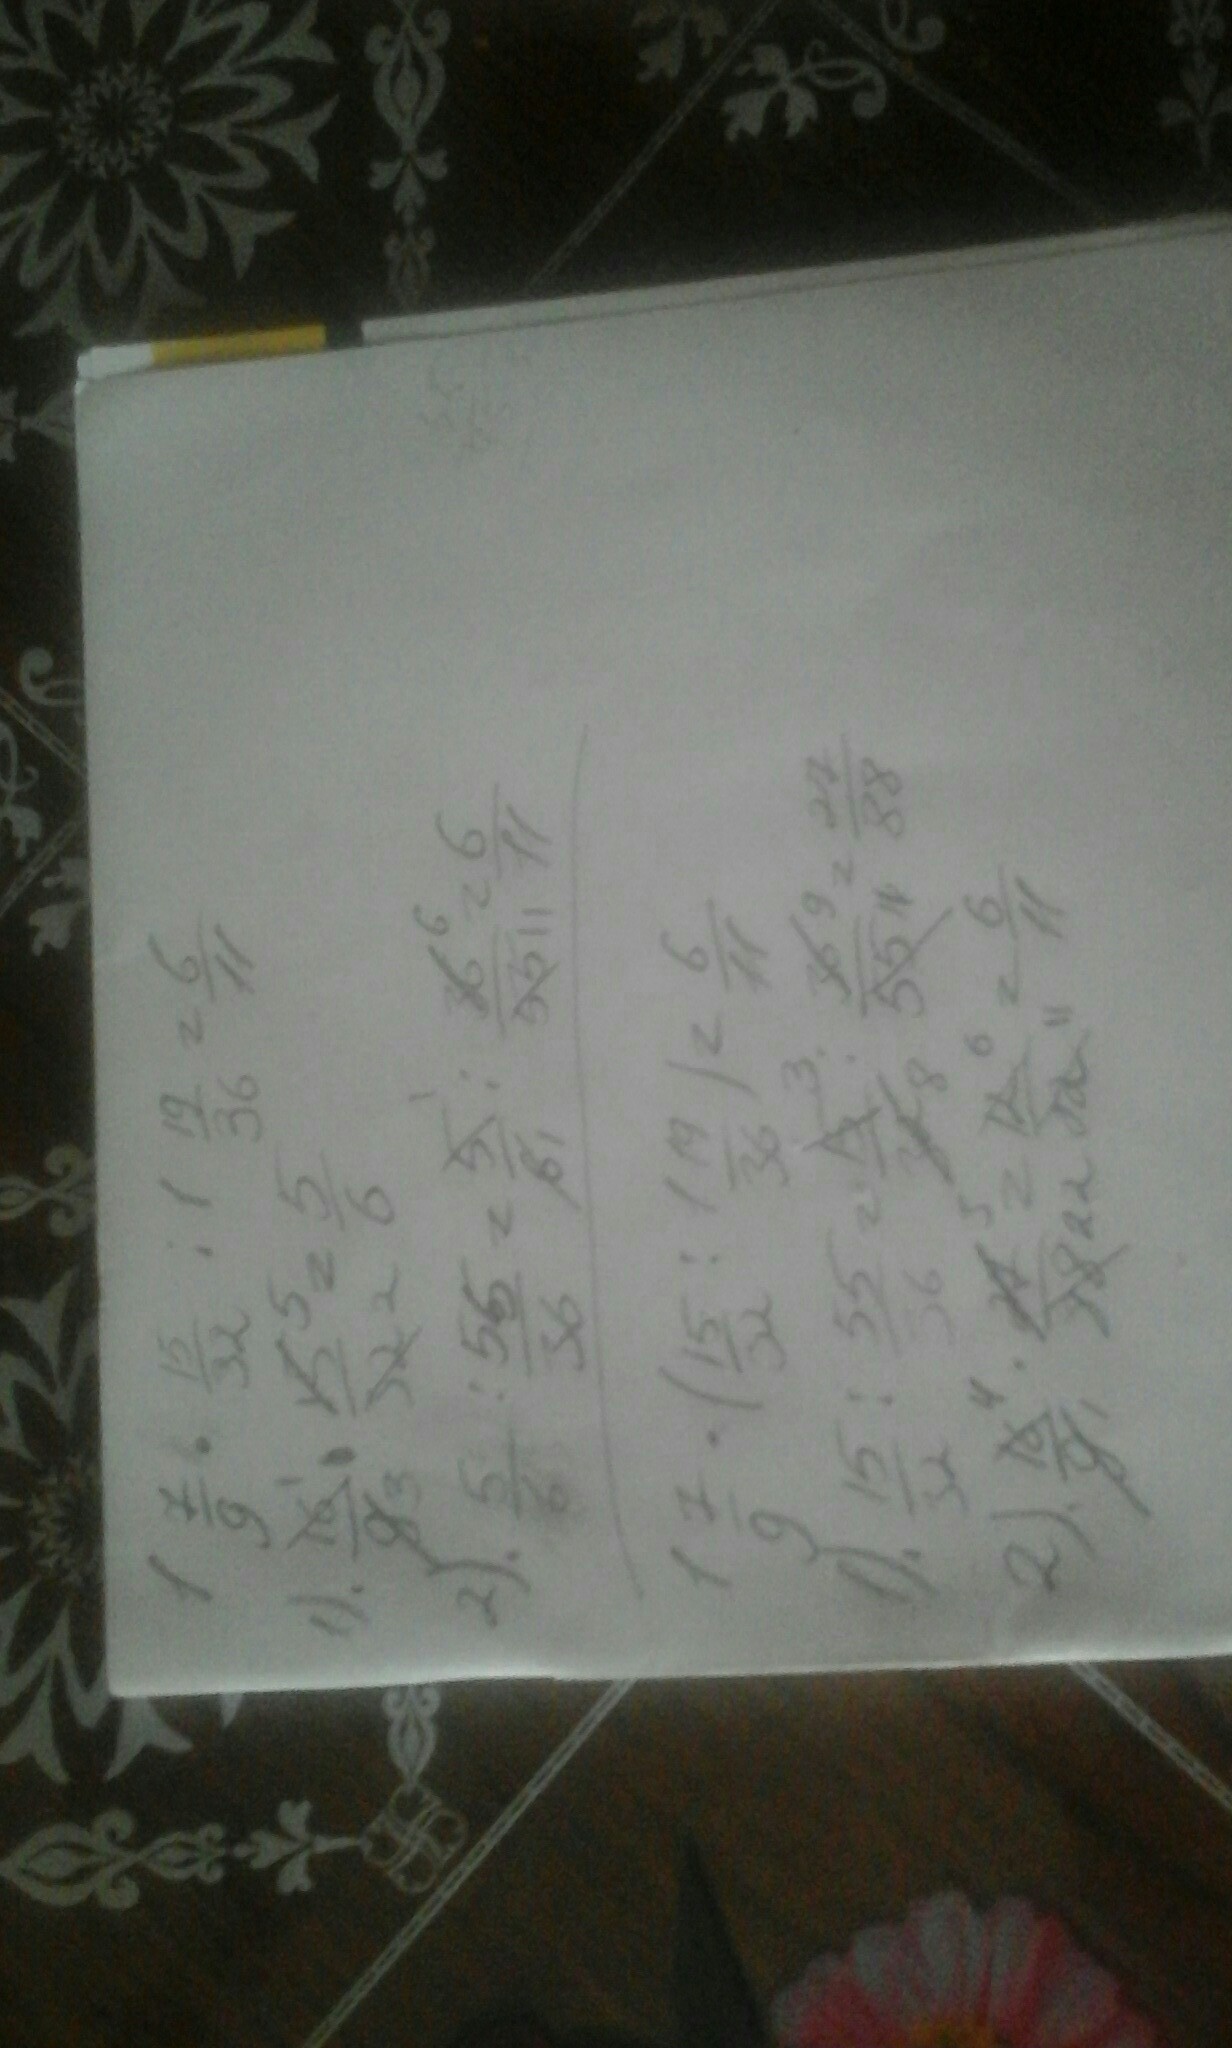 1 7/9 · 15/32 : 1 19/36 = 6/11
1). 16/9 · 15/32 = 5/6
2). 5/6 : 55/36 = 5/6 · 36/55 = 6/11
1 7/9 · (15/32 : 1 19/36) = 6/11
1). 15/32 : 55/36 = 15/32 · 36/55 = 27/88
2). 16/9 · 27/88 = 12/22 = 6/11